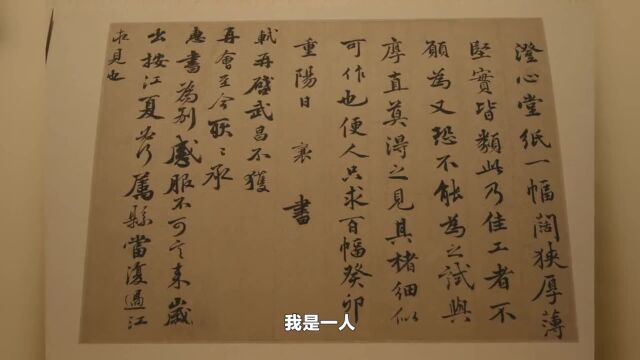 澄心堂紙一幅闊狹厚薄
堅實皆類此乃佳工者不
願為又恐不能為之試與
厚直莫得之見其楮細似
可作也便人只求百幅癸卯
重陽日 襄 書
軾再啓武昌不獲
再會至今耿〻承
惠書為別感服不可言來歲
出按江夏必行屬縣當復過江
求見也
我是一人